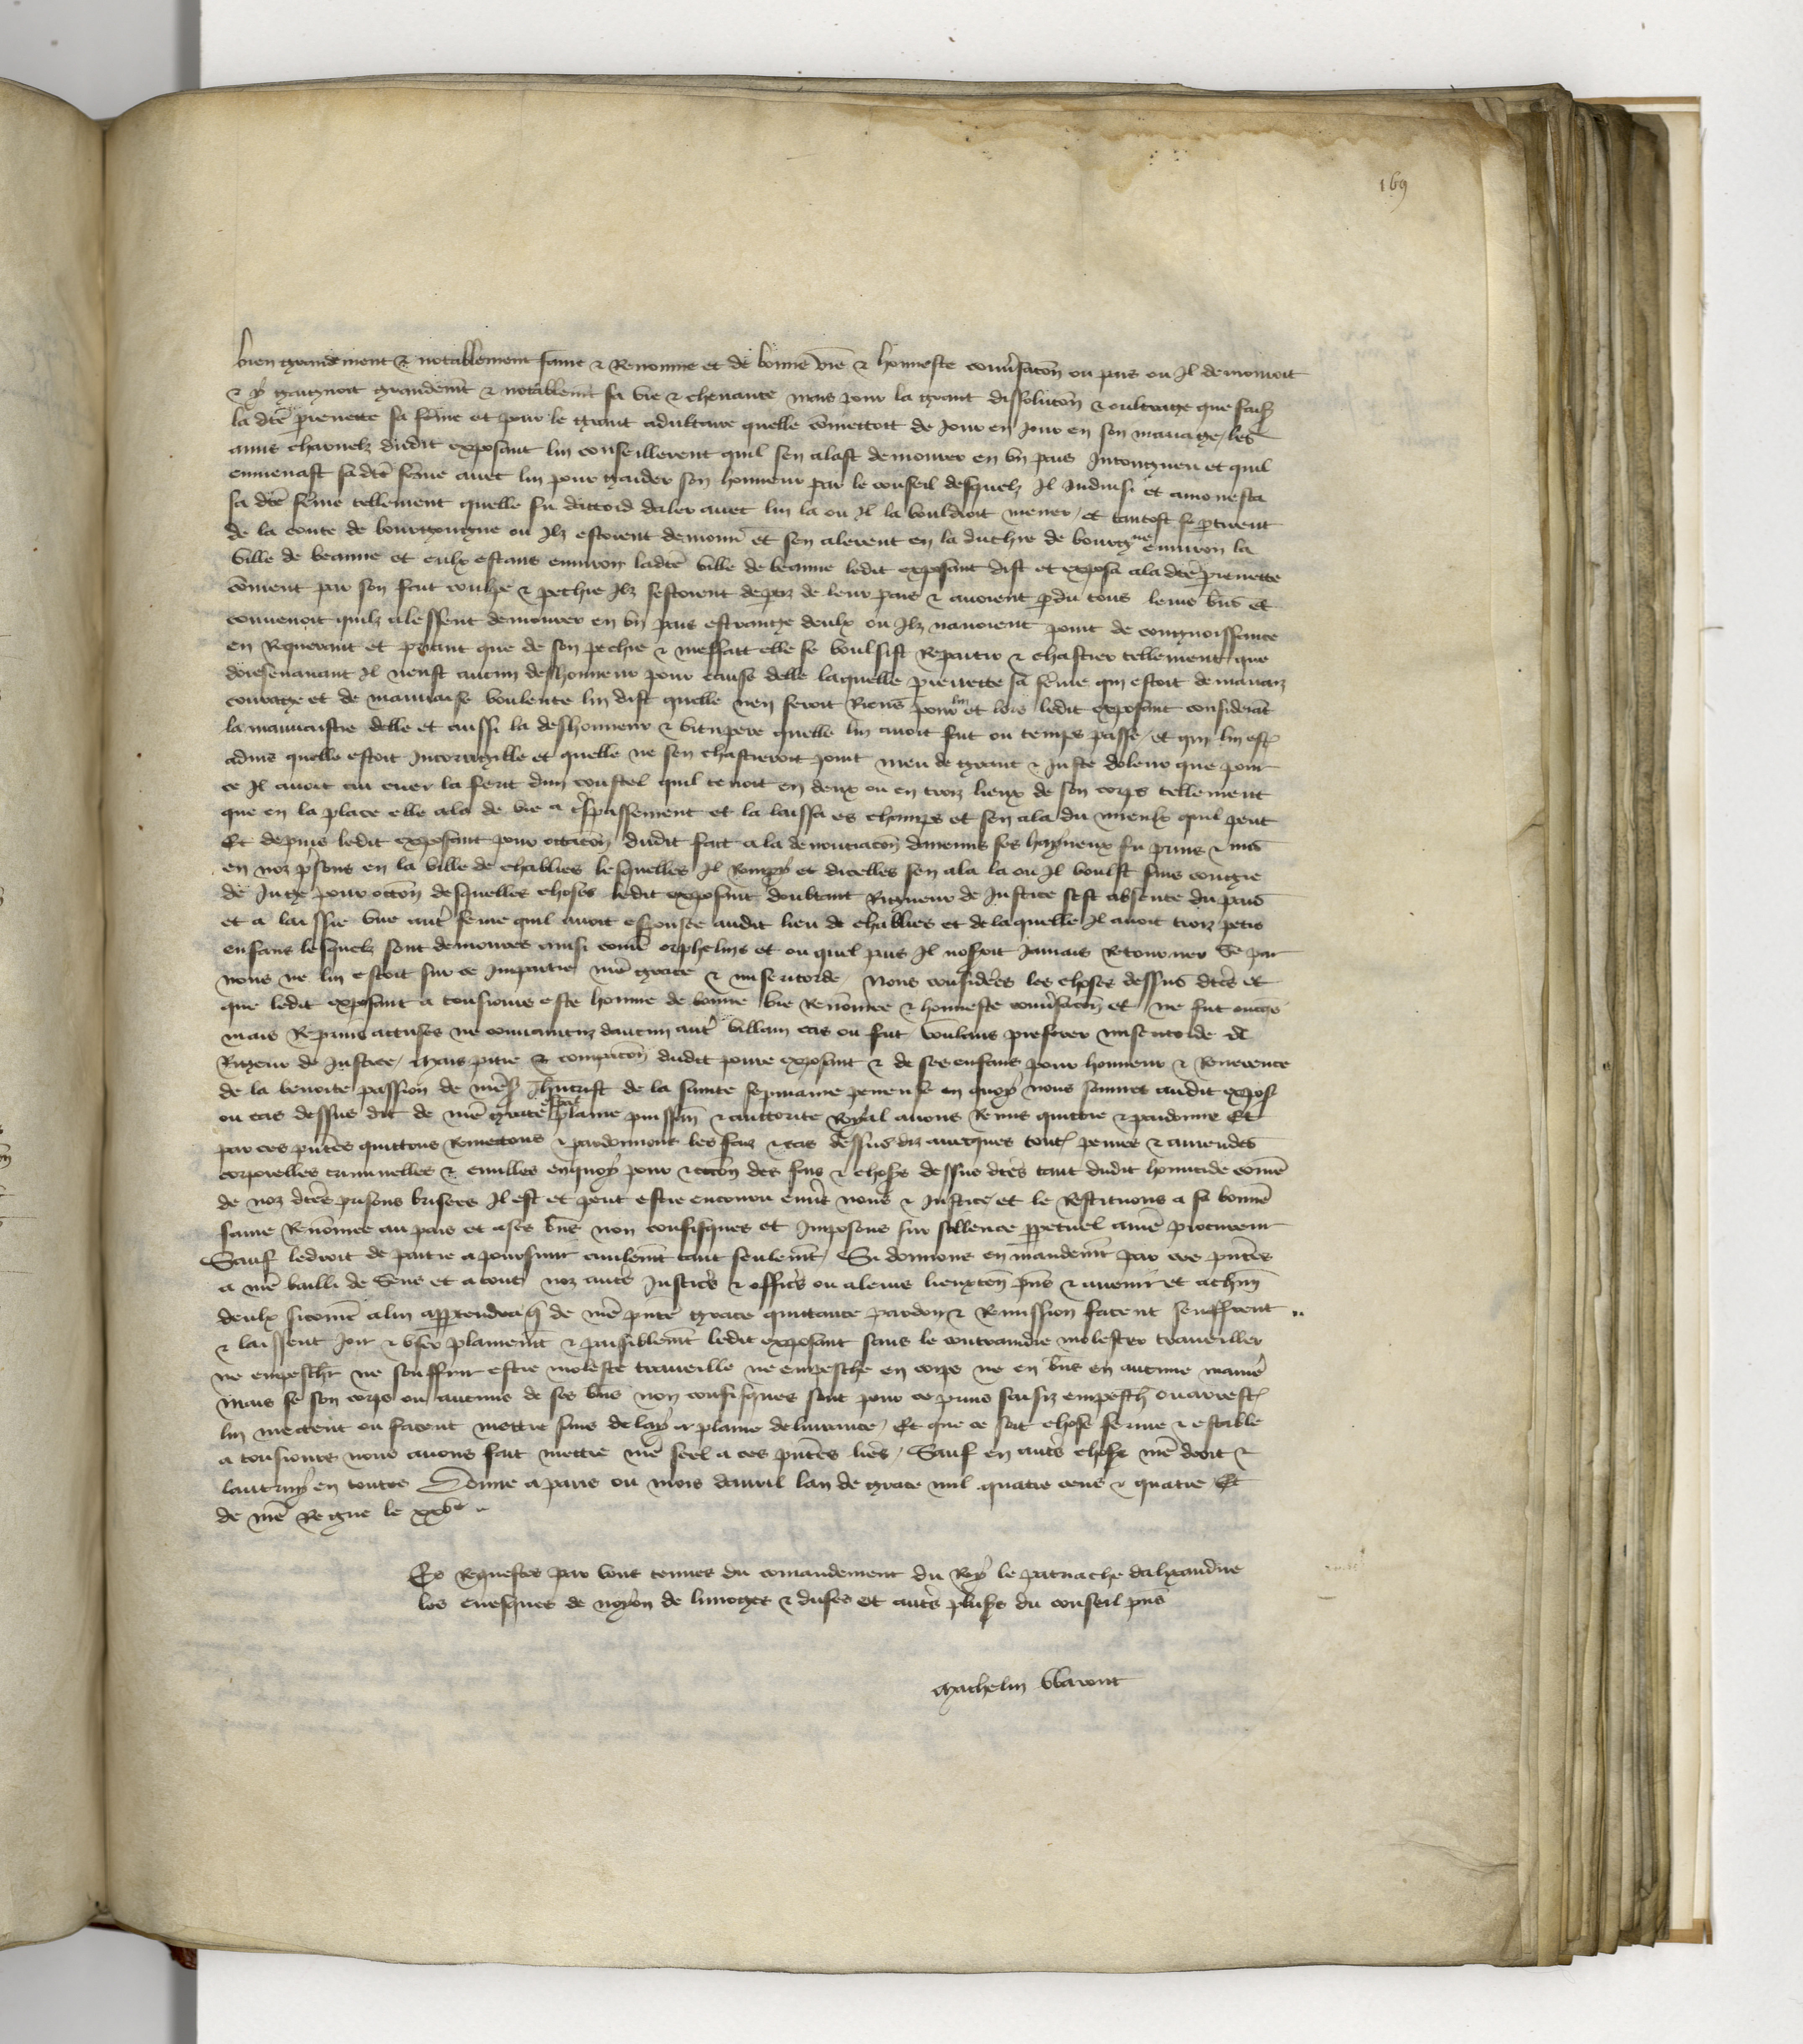 169
bien grandement & notablement fame & Renomme et de bonne vie & honneste conv̄sacōn ou pais ou Il demouroit
& y gaignoit grandemt & notablemt sa vie & chevance mais pour la grant dissolucōn & oultrage que faisoit
la dcē pierrette sa fēme et pour le grant adultaire quelle cōmettoit de Jour en Jour en son mariage / les
amis charnelz dudit exposant lui conseillerent quil sen alast demourer en vn pais Incongneu et quil
enmenast sa dcē fēme avec lui pour garder son honneur par le conseil desquelz Il Induisi et amonesta
sa dcē fēme tellement quelle fu daccord daler avec lui la ou Il la vouldroit mener / et tantost se ptirent
de la conte de bourgongne ou Ilz estoient demour̄ et sen alerent en la duchie de bourgne environ la
ville de beaune et eulx estans environ ladcē ville de beaune ledit exposant dist et exposa ala dcē pierrette
cōment par son fait coulpe & pechie Ilz sestoient deptiz de leur pais & avoient pdu tous leurs bn̄s et
convenoit quilz alessent demourer en vn pais estrange deulx ou Ilz navoient point de congnoissance
en Requerant et priant que de son pechie & meffait elle se voulsist Repentir & chastier tellement que
doresenavant Il neust aucun deshonneur pour cause delle laquelle pierrette sa fēme qui estoit de mauvaiz
courage et de mauvaise voulente lui dist quelle nen feroit Riens pour lui et lors ledit exposant considerāt
la mauvaistie delle et aussi la deshonneur & vitupere quelle lui avoit fait ou temps passe / et qui lui est
advis quelle estoit Incorrigille et quelle ne sen chastieroit point meu de grant & Juste doleur que pour
ce Il avoit au cuer la feri dun coustel quil tenoit en deux ou en troiz lieux de son corps tellement
que en la place elle ala de vie a trespassement et la laissa es champs et sen ala du mieulx quil peut
Et depuis ledit exposant pour occacōn dudit fait a la denonciacōn daucuns ses hayneux fu prins & mis
en noz prisons en la ville de chablies lesquelles Il Rompy et dicelles sen ala la ou Il voulst sans congie
de Juge pour occōn desquelles choses ledit exposant doubtant Rigueur de Justice sest absente du pais
et a laissie vne autr̄ fēme quil avoit espousee audit lieu de chablies et de laquelle Il avoit troiz petis
enfans lesquelz sont demourez ainsi comē orphelins et ou quel pais Il noseroit Jamais Retourner Se par
nous ne lui estoit sur ce Impartie nr̄e grace & misericorde / Nous considerēs les choses dessus dcēs et
que ledit exposant a tousiours este homme de bonne vie Renōmee & honneste conv̄sacōn et ne fut oncques
mais Reprins actusés ne convaincuz daucun autr̄ villain cas ou fait voulans preferer misericorde a
Rigeur de Justice / Mais pitie & compacōn dudit povre exposant & de ses enfans pour honneur & Reverence
de la benoite passion de nr̄e sʳ Jhūcrist de la sainte sepmaine peneuse en quoy nous sommes audit expos
ou cas dessus dit de nr̄e grace espal plaine puissan̄ & auctorite Royal avons Remis quictie & pardonne Et
par ces pntēs quictons Remettons & pardonnons les faiz & cas dessus diz avecques tout peines & amendes
corporelles criminelles & civilles enquoy pour occōn des fais & choses dessus dcēs tant dudit homicide comē
de noz dcēs prisons brisees Il est et peut estre encouru env̄s nous & Justice et le Restituons a sa bonne
fame Renōmee au pais et a ses bn̄s non confisques et Imposons sur ce sillence ppetuel a nr̄e procureur
Sauf ledroit de partie a poursuir civilemt tant seulemt / Si donnons en mandemt par ces pntēs
a nr̄e bailli de Sens et a tous noz autrēs Justicrēs & officrēs ou a leurs lieuxten̄ pn̄s & avenir et a chūn
deulx sicomē a lui appartendra q̄ de nr̄e pnte grace quictance pardon & Remission facent seuffrent
& laissent Joir & vser plainemt & paisiblemt ledit exposant sans le contraindre molester traveiller
ne empeschr̄ ne souffrir estre moleste traveille ne empesche en corps ne en bn̄s en aucune manie᷑
Mais se son corps ou aucuns de ses bn̄s non confisques sont pour ce prins saisiz empesch ou arrest
lui mettent ou facent mettre sans delay a plaine delivrance / Et que ce soit chose ferme & estable
a tousiours nous avons fait mettre nr̄e seel a ces pntēs lrēs / Sauf en autrēs choses nr̄e droit &
lautruy en toutes Donne a paris ou mois davril lan de grace mil quatre cens & quatre Et
de nr̄e Regne le xxvᵉ
Es Requestes par vous tenues du comandement du Roy le patriache dalixandrie
les evesques de noyon de limoges & duses et autrēs plusrs du conseil pn̄s
Machelin Warout